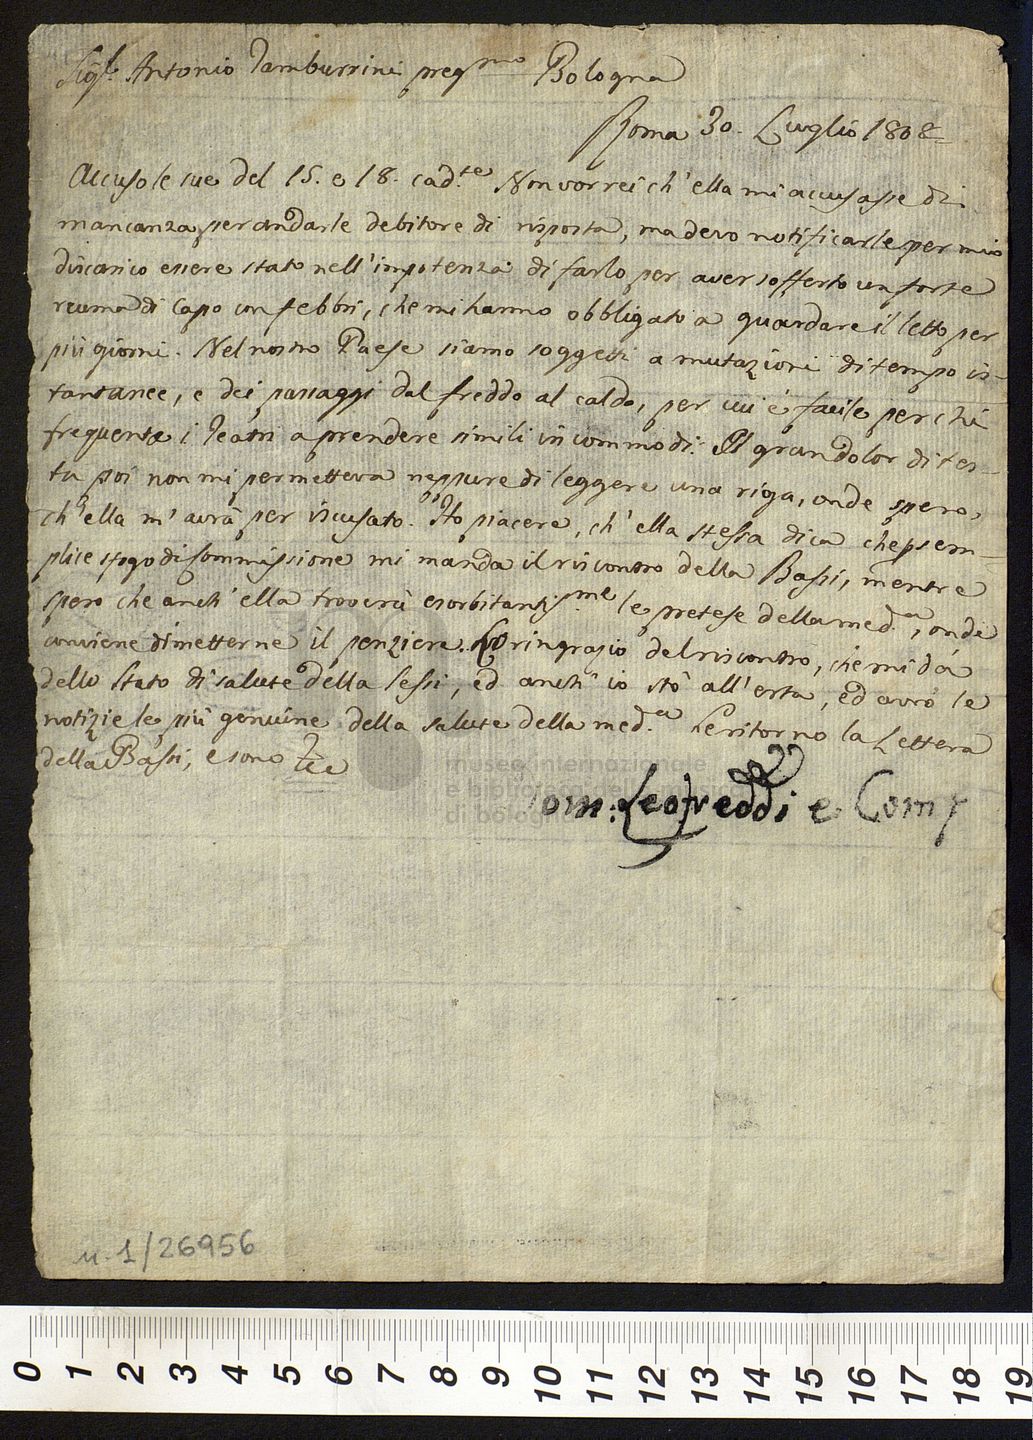 Sig.r Antonio Tamburrini preg.mo Bologna
Roma 30. Luglio 1808
Accuso le sue del 15. e 18. cad.te Non vorrei ch'ella mi accusasse di
mancanza per andarle debitore di risposta, ma devo notificarle per mio
discarico essere stato nell'impotenza di farlo per aver sofferto un forte
reuma di Capo con febbri, che mi hanno obbligato a guardare il letto per
più giorni. Nel nostro Paese siamo soggetti a mutazioni di tempo is-
tantanee, e dei passaggi dal freddo al caldo, per cui è facile per chi
frequenta i Teatri a prendere simili incommodi. Il gran dolor di tes-
ta poi non mi permetteva neppure di leggere una riga, onde spero,
ch'ella m'avrà per iscusato. Ho piacere, ch'ella stessa dica che p sem-
plice sfogo di Commissione mi manda il riscontro della Bassi, mentre
spero che anch'ella troverà esorbitantis.me le pretese della med.a, onde
conviene dimetterne il penziere. La ringrazio del riscontro, che mi dà
dello Stato di salute della Sessi, ed anch'io stò all'erta, ed avrò le
notizie le più genuine della salute della med.a Le ritorno la Lettera
della Bassi, e sono
Dom: Leofreddi e Comp
museo internazionale
e biblioteca della musica
di bologna
n. 1/26956
0 1 2 3 4 5 6 7 8 9 10 11 12 13 14 15 16 17 18 19